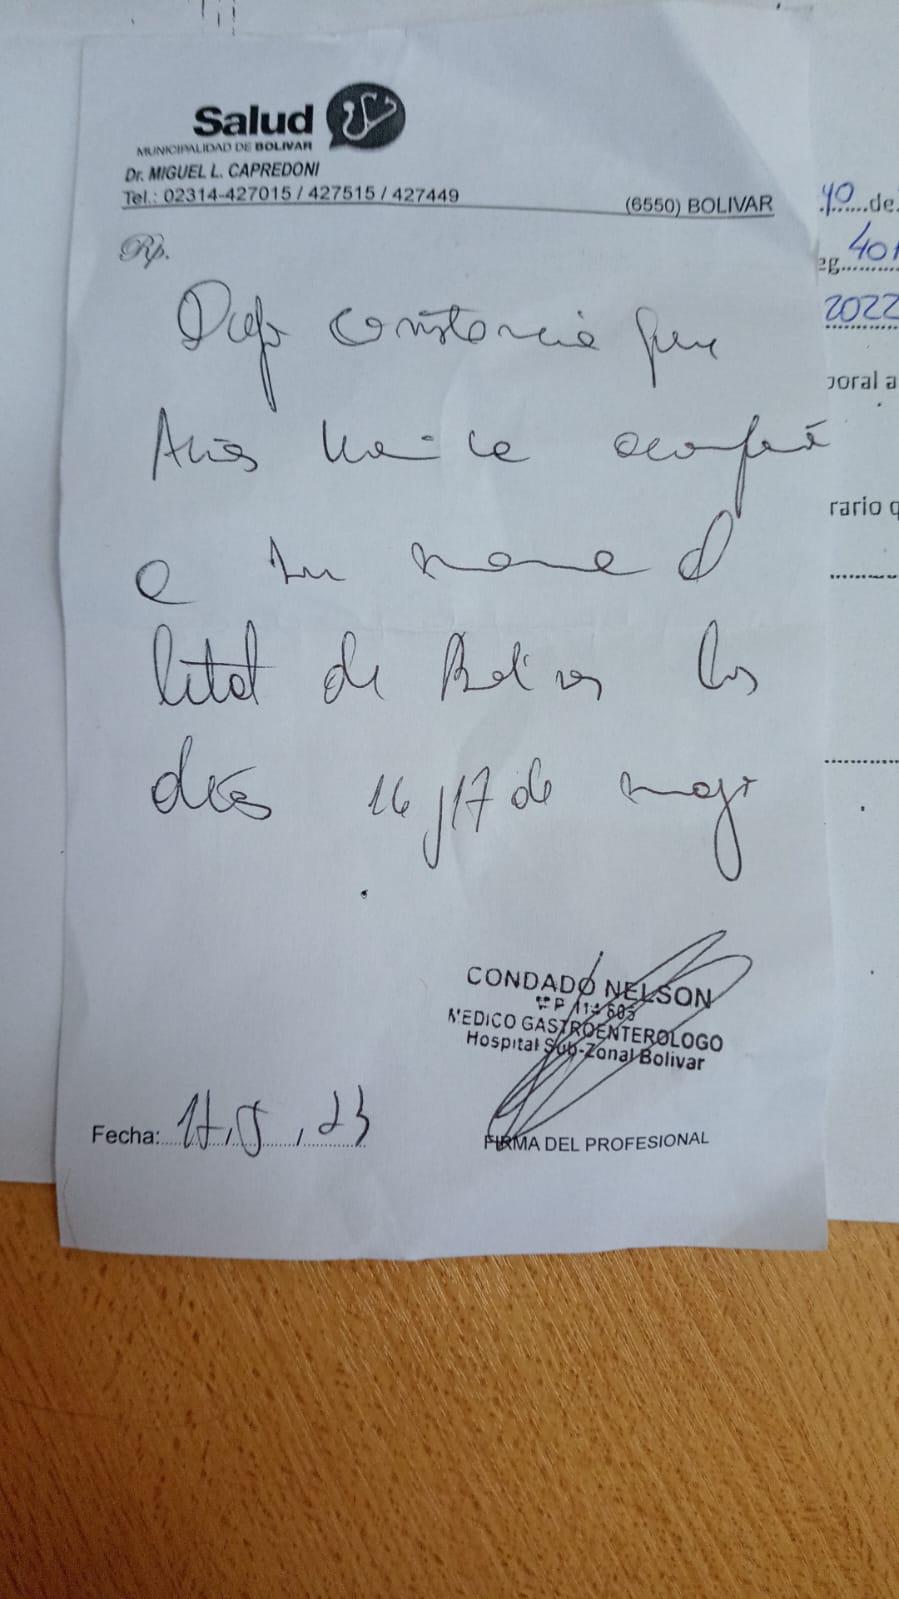 Salud
MUNICIPALIDAD DE BOLIVAR
Dr. MIGUEL L. CAPREDONI
Tel.: 02314-427015 / 427515 / 427449
(6550) BOLIVAR
Rp.
Dejo constancia que
Arias acompañó
a su mamá al
de Bolívar los
días 16 y 17 de mayo
CONDADO NELSON
MEDICO GASTROENTEROLOGO
Hospital Sub-Zonal Bolivar
Fecha: 17, 5, 23
FIRMA DEL PROFESIONAL
40 de
401
2022
rario q